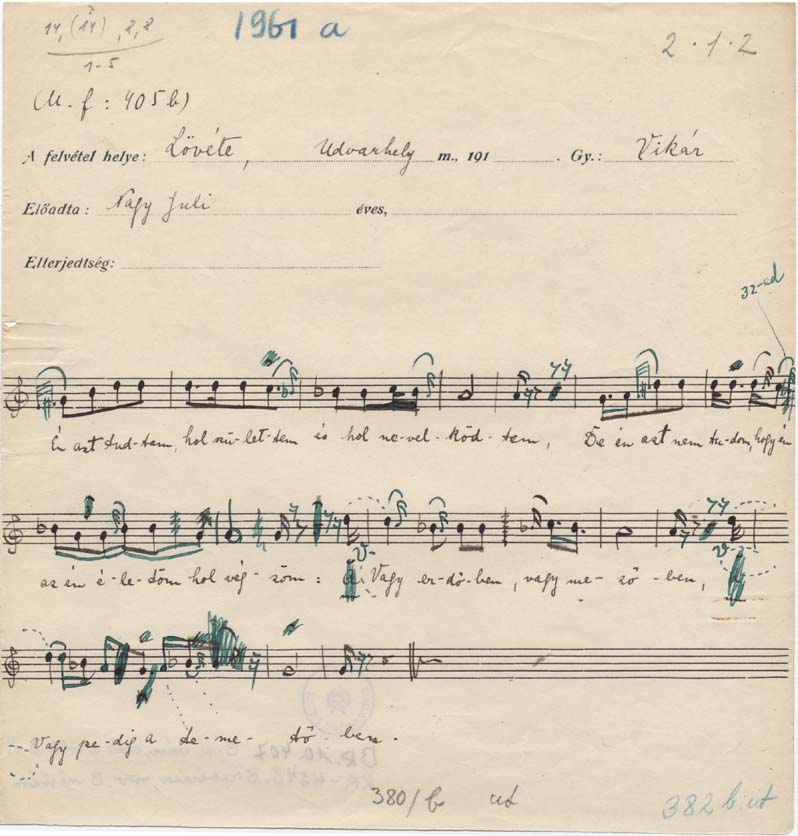 14, (14)?, 8, 8
1-5
1961 a
2·1·2
(M.f: 405 b)
A felvétel helye: Lövéte, Udvarhely m., 191 . Gy.: Vikár
Előadta: Nagy Juli éves,
Elterjedtség:
32-ed
Én azt tud-tam, hol szü-let-tem és hol ne-vel-köd-tem, De én azt nem tu-dom, hogy én
az én é-le-döm hol vég-zöm: Vagy er-dő-ben, vagy me-ző-ben,
Vagy pe-dig a te-me-tő-ben.
BR.10.407
380/b ut
382 b. ut